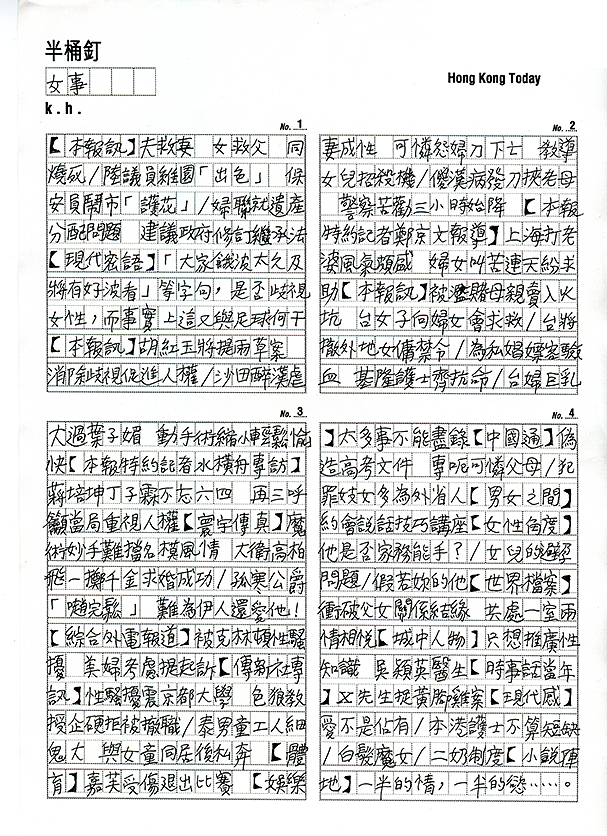 半桶釘
女事
k.h.
Hong Kong Today
No. 1
【本報訊】夫救妻 女救父 同
燒死/陸議員維園「出色」 保
安員鬧市「護花」/婦聯就遺產
分配問題 建議政府修訂繼承法
【現代密語】「大家餓波太久及
將有好波看」等字句，是否歧視
女性，而事實上這又與足球何干
【本報訊】胡紅玉將提兩草案
消除歧視促進人權/沙田醉漢虐
No. 2
妻成性 可憐怨婦刀下亡 教導
女兒招殺機/傻漢病發刀挾老母
警察苦勸三小時始降 【本報
特約記者鄭京文報導】上海打老
婆風氣頗盛 婦女叫苦連天紛求
助【本報訊】被濫賭母親賣入火
坑 台女子向婦女會求救/台將
撤外地女傭禁令/為私娼嫖客驗
血 基隆護士齊抗命/台婦巨乳
No. 3
大過葉子媚 動手術縮小輕鬆愉
快【本報特約記者水橫舟專訪】
蔣培坤丁子霖不忘六四 再三呼
籲當局重視人權【寰宇傳真】魔
術妙手難擋名模風情 大衛高柏
飛一擲千金求婚成功/孤寒公爵
「嘥完鬆」 難為伊人還愛他！
【綜合外電報道】被克林頓性騷
擾 美婦考慮提起訴【傳新社專
訊】性騷擾震京都大學 色狼教
授企硬拒被撤職/泰男童工人細
鬼大 與女童同居後私奔 【體
育】嘉芙受傷退出比賽 【娛樂
No. 4
】太多事不能盡錄【中國通】偽
造高考文件 專呃可憐父母/犯
罪妓女多為外省人【男女之間】
約會說話技巧講座【女性角度】
他是否家務能手？/女兒的避孕
問題/假若妳的他【世界檔案】
衝破父女關係結緣 共處一室兩
情相悅【城中人物】只想推廣性
知識 吳穎英醫生【時事話當年
】X先生捉黃腳雞案【現代感】
愛不是佔有/本港護士不算短缺
/白髮魔女/二奶制度【小說陣
地】一半的情，一半的慾……。